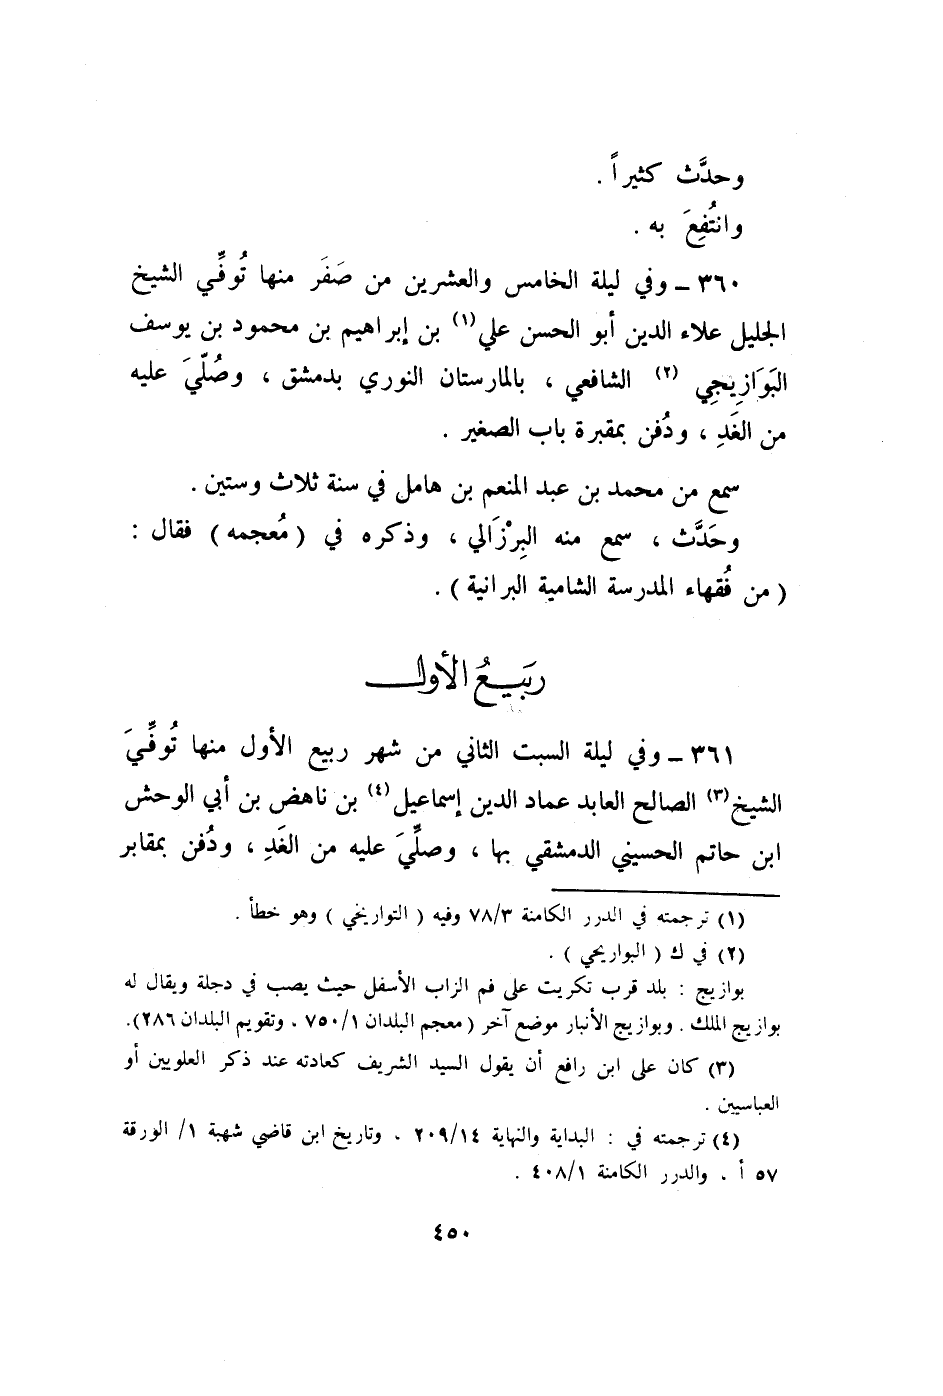 وحدَّث كثيراً .
وانتُفِعَ به .
٣٦٠ ـ وفي ليلة الخامس والعشرين من صَفَر منها تُوفِّي الشيخ
الجليل علاء الدين أبو الحسن علي(١) بن إبراهيم بن محمود بن يوسف
البَوَازِيجي (٢) الشافعي ، بالمارستان النوري بدمشق ، وصُلّيَ عليه
من الغَدِ ، ودُفن بمقبرة باب الصغير .
سمع من محمد بن عبد المنعم بن هامل في سنة ثلاث وستين .
وحَدَّث ، سمع منه البِرْزَالي ، وذكره في ( مُعجمه ) فقال :
( من فُقهاء المدرسة الشامية البرانية ) .
ربَيعُ الأول
٣٦١ ـ وفي ليلة السبت الثاني من شهر ربيع الأول منها تُوفِّيَ
الشيخ(٣) الصالح العابد عماد الدين إسماعيل(٤) بن ناهض بن أبي الوحش
ابن حاتم الحسيني الدمشقي بها ، وصلِّيَ عليه من الغَدِ ، ودُفن بمقابر
(١) ترجمته في الدرر الكامنة ٧٨/٣ وفيه ( التواريخي ) وهو خطأ .
(٢) في ك ( البواريحي ) .
بوازيج : بلد قرب تكريت على فم الزاب الأسفل حيث يصب في دجلة ويقال له
بوازيج الملك . وبوازيج الأنبار موضع آخر ( معجم البلدان ٧٥٠/١ ، وتقويم البلدان ٢٨٦).
(٣) كان على ابن رافع أن يقول السيد الشريف كعادته عند ذكر العلويين أو
العباسيين .
(٤) ترجمته في : البداية والنهاية ٢٠٩/١٤ ، وتاريخ ابن قاضي شهبة ١/ الورقة
٥٧ أ ، والدرر الكامنة ٤٠٨/١ .
٤٥٠